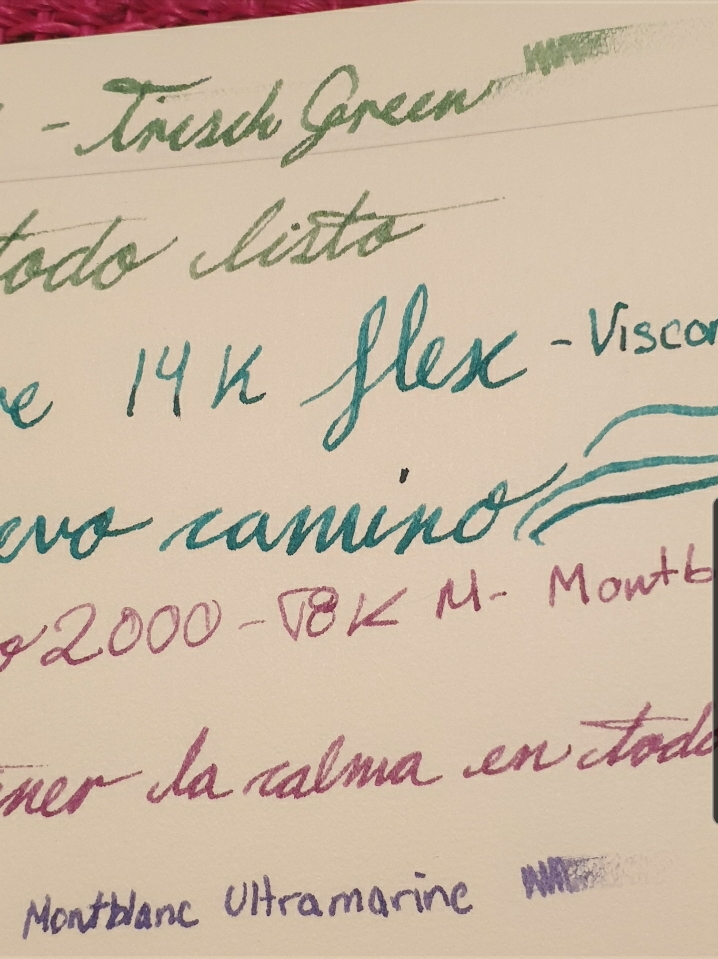 - Irish Green
todo listo
14K flex - Viscon
camino
2000 - 18K M- Montb
la calma en todo
Montblanc Ultramarine